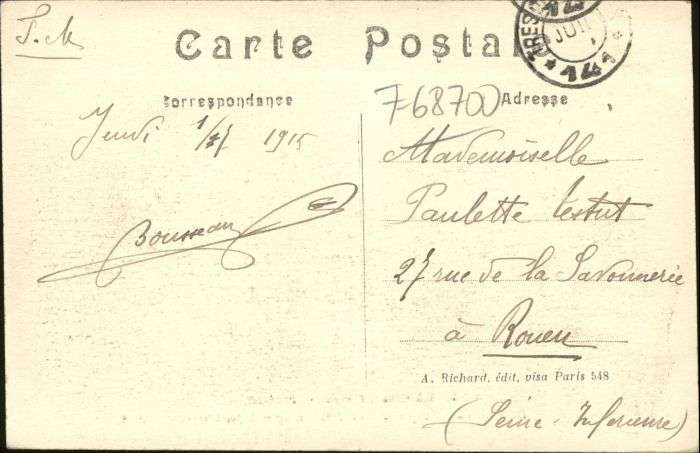 F. M.
Carte Postale
TRESOR
JUIL
* 141 *
Correspondance
Jeudi 1/7 1915
Bousseau
768700
Adresse
Mademoiselle
Paulette Testut
27 rue de la Savonnerie
à Rouen
A. Richard, édit, visa Paris 548
(Seine-Inférieure)